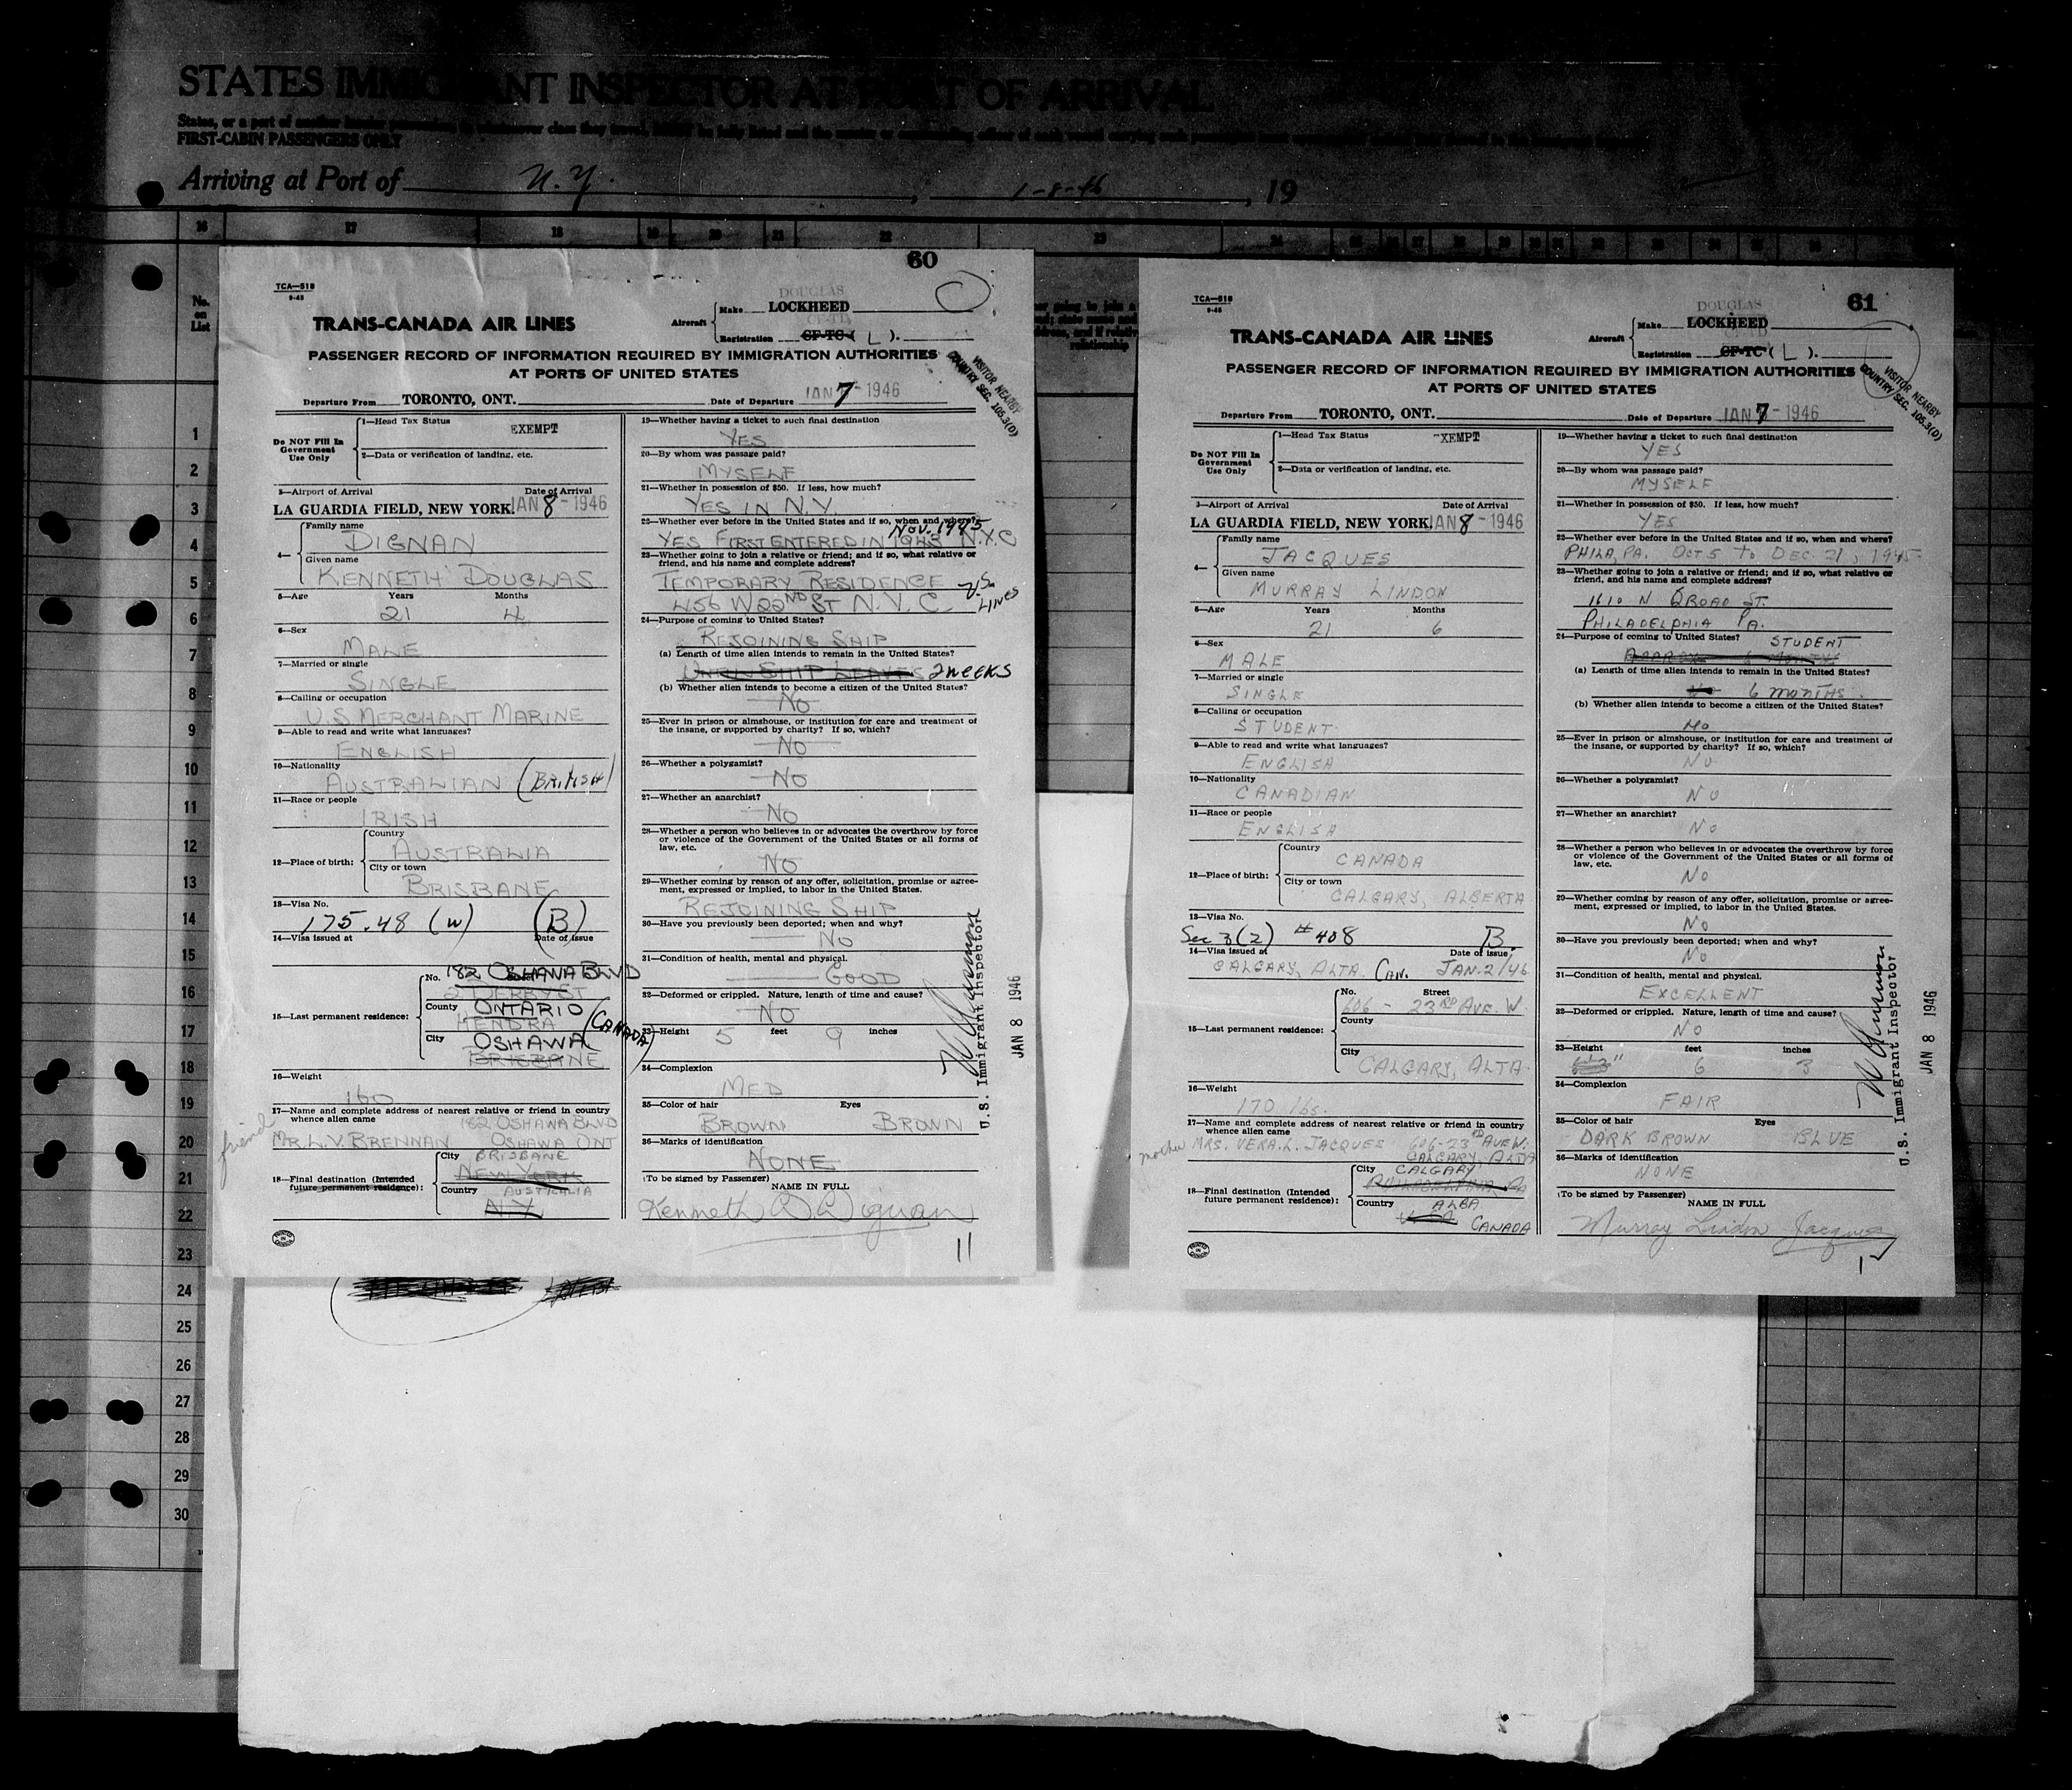 STATES IMMIGRANT INSPECTOR AT PORT OF ARRIVAL
FIRST-CABIN PASSENGERS ONLY
Arriving at Port of N.Y. , 1-8-46 , 19
16 17 18 19 20 21 22 23
No. on List
1
2
3
4
5
6
7
8
9
10
11
12
13
14
15
16
17
18
19
20
21
22
23
24
25
26
27
28
29
30
60
TCA—518
9-45
DOUGLAS
TRANS-CANADA AIR LINES
Aircraft Make LOCKHEED
Registration CF-TC ( L ).
PASSENGER RECORD OF INFORMATION REQUIRED BY IMMIGRATION AUTHORITIES
AT PORTS OF UNITED STATES
VISITOR NEARBY
COUNTRY SEC. 105.3(D)
Departure From TORONTO, ONT. Date of Departure JAN 7 - 1946
Do NOT Fill In Government Use Only
1—Head Tax Status EXEMPT
2—Data or verification of landing, etc.
3—Airport of Arrival Date of Arrival
LA GUARDIA FIELD, NEW YORK JAN 8 - 1946
4— Family name
DIGNAN
Given name
KENNETH DOUGLAS
5—Age Years Months
21 4
6—Sex
MALE
7—Married or single
SINGLE
8—Calling or occupation
U.S MERCHANT MARINE
9—Able to read and write what languages?
ENGLISH
10—Nationality
AUSTRALIAN (BRITISH)
11—Race or people
IRISH
12—Place of birth: Country
AUSTRALIA
City or town
BRISBANE
13—Visa No.
175.48 (W) (B)
14—Visa issued at Date of issue
15—Last permanent residence: No. 182 OSHAWA BLVD
2 DERRY ST
County ONTARIO
HENDRA (CANADA)
City OSHAWA
BRISBANE
16—Weight
160
17—Name and complete address of nearest relative or friend in country
whence alien came 182 OSHAWA BLVD
friend MR. L.V. BRENNAN OSHAWA ONT
18—Final destination (Intended
future permanent residence): City BRISBANE
NEW YORK
Country AUSTRALIA
N.Y.
19—Whether having a ticket to such final destination
YES
20—By whom was passage paid?
MYSELF
21—Whether in possession of $50. If less, how much?
YES IN N.Y.
22—Whether ever before in the United States and if so, when and where?
NOV. 1945
YES FIRST ENTERED IN 1943 N.Y.C
23—Whether going to join a relative or friend; and if so, what relative or
friend, and his name and complete address?
TEMPORARY RESIDENCE U.S. LINES
456 W 22ND ST N.Y.C.
24—Purpose of coming to United States?
REJOINING SHIP
(a) Length of time alien intends to remain in the United States?
UNTIL SHIP LEAVES 2 weeks
(b) Whether alien intends to become a citizen of the United States?
NO
25—Ever in prison or almshouse, or institution for care and treatment of
the insane, or supported by charity? If so, which?
NO
26—Whether a polygamist?
NO
27—Whether an anarchist?
NO
28—Whether a person who believes in or advocates the overthrow by force
or violence of the Government of the United States or all forms of
law, etc.
NO
29—Whether coming by reason of any offer, solicitation, promise or agree-
ment, expressed or implied, to labor in the United States.
REJOINING SHIP
30—Have you previously been deported; when and why?
NO
31—Condition of health, mental and physical.
GOOD
32—Deformed or crippled. Nature, length of time and cause?
NO
33—Height 5 feet 9 inches
34—Complexion
MED
35—Color of hair Eyes
BROWN BROWN
36—Marks of identification
NONE
(To be signed by Passenger)
NAME IN FULL
Kenneth D. Dignan
11
U.S. Immigrant Inspector
JAN 8 1946
61
TCA—518
9-45
DOUGLAS
TRANS-CANADA AIR LINES
Aircraft Make LOCKHEED
Registration CF-TC ( L ).
PASSENGER RECORD OF INFORMATION REQUIRED BY IMMIGRATION AUTHORITIES
AT PORTS OF UNITED STATES
VISITOR NEARBY
COUNTRY SEC. 105.3(D)
Departure From TORONTO, ONT. Date of Departure JAN 7 - 1946
Do NOT Fill In Government Use Only
1—Head Tax Status EXEMPT
2—Data or verification of landing, etc.
3—Airport of Arrival Date of Arrival
LA GUARDIA FIELD, NEW YORK JAN 8 - 1946
4— Family name
JACQUES
Given name
MURRAY LINDON
5—Age Years Months
21 6
6—Sex
MALE
7—Married or single
SINGLE
8—Calling or occupation
STUDENT
9—Able to read and write what languages?
ENGLISH
10—Nationality
CANADIAN
11—Race or people
ENGLISH
12—Place of birth: Country
CANADA
City or town
CALGARY, ALBERTA
13—Visa No.
Sec 3(2) #408 B.
14—Visa issued at Date of issue
CALGARY, ALTA. CAN. JAN. 2/46
15—Last permanent residence: No. Street
606 - 23RD AVE. W.
County
City
CALGARY, ALTA.
16—Weight
170 lbs.
17—Name and complete address of nearest relative or friend in country
whence alien came
mother MRS. VERA. L. JACQUES 606-23RD AVE W.
CALGARY, ALTA
18—Final destination (Intended
future permanent residence): City CALGARY
PHILADELPHIA Pa
Country ALBA
CANADA
19—Whether having a ticket to such final destination
YES
20—By whom was passage paid?
MYSELF
21—Whether in possession of $50. If less, how much?
YES
22—Whether ever before in the United States and if so, when and where?
PHILA, PA. OCT 5 TO DEC. 21, 1945
23—Whether going to join a relative or friend; and if so, what relative or
friend, and his name and complete address?
1610 N BROAD ST.
PHILADELPHIA PA.
24—Purpose of coming to United States? STUDENT
APPROX 6 MONTHS
(a) Length of time alien intends to remain in the United States?
6 MONTHS.
(b) Whether alien intends to become a citizen of the United States?
NO
25—Ever in prison or almshouse, or institution for care and treatment of
the insane, or supported by charity? If so, which?
NO
26—Whether a polygamist?
NO
27—Whether an anarchist?
NO
28—Whether a person who believes in or advocates the overthrow by force
or violence of the Government of the United States or all forms of
law, etc.
NO
29—Whether coming by reason of any offer, solicitation, promise or agree-
ment, expressed or implied, to labor in the United States.
NO
30—Have you previously been deported; when and why?
NO
31—Condition of health, mental and physical.
EXCELLENT
32—Deformed or crippled. Nature, length of time and cause?
NO
33—Height feet inches
6'3" 6 3
34—Complexion
FAIR
35—Color of hair Eyes
DARK BROWN BLUE
36—Marks of identification
NONE
(To be signed by Passenger)
NAME IN FULL
Murray Lindon Jacques
1
U.S. Immigrant Inspector
JAN 8 1946